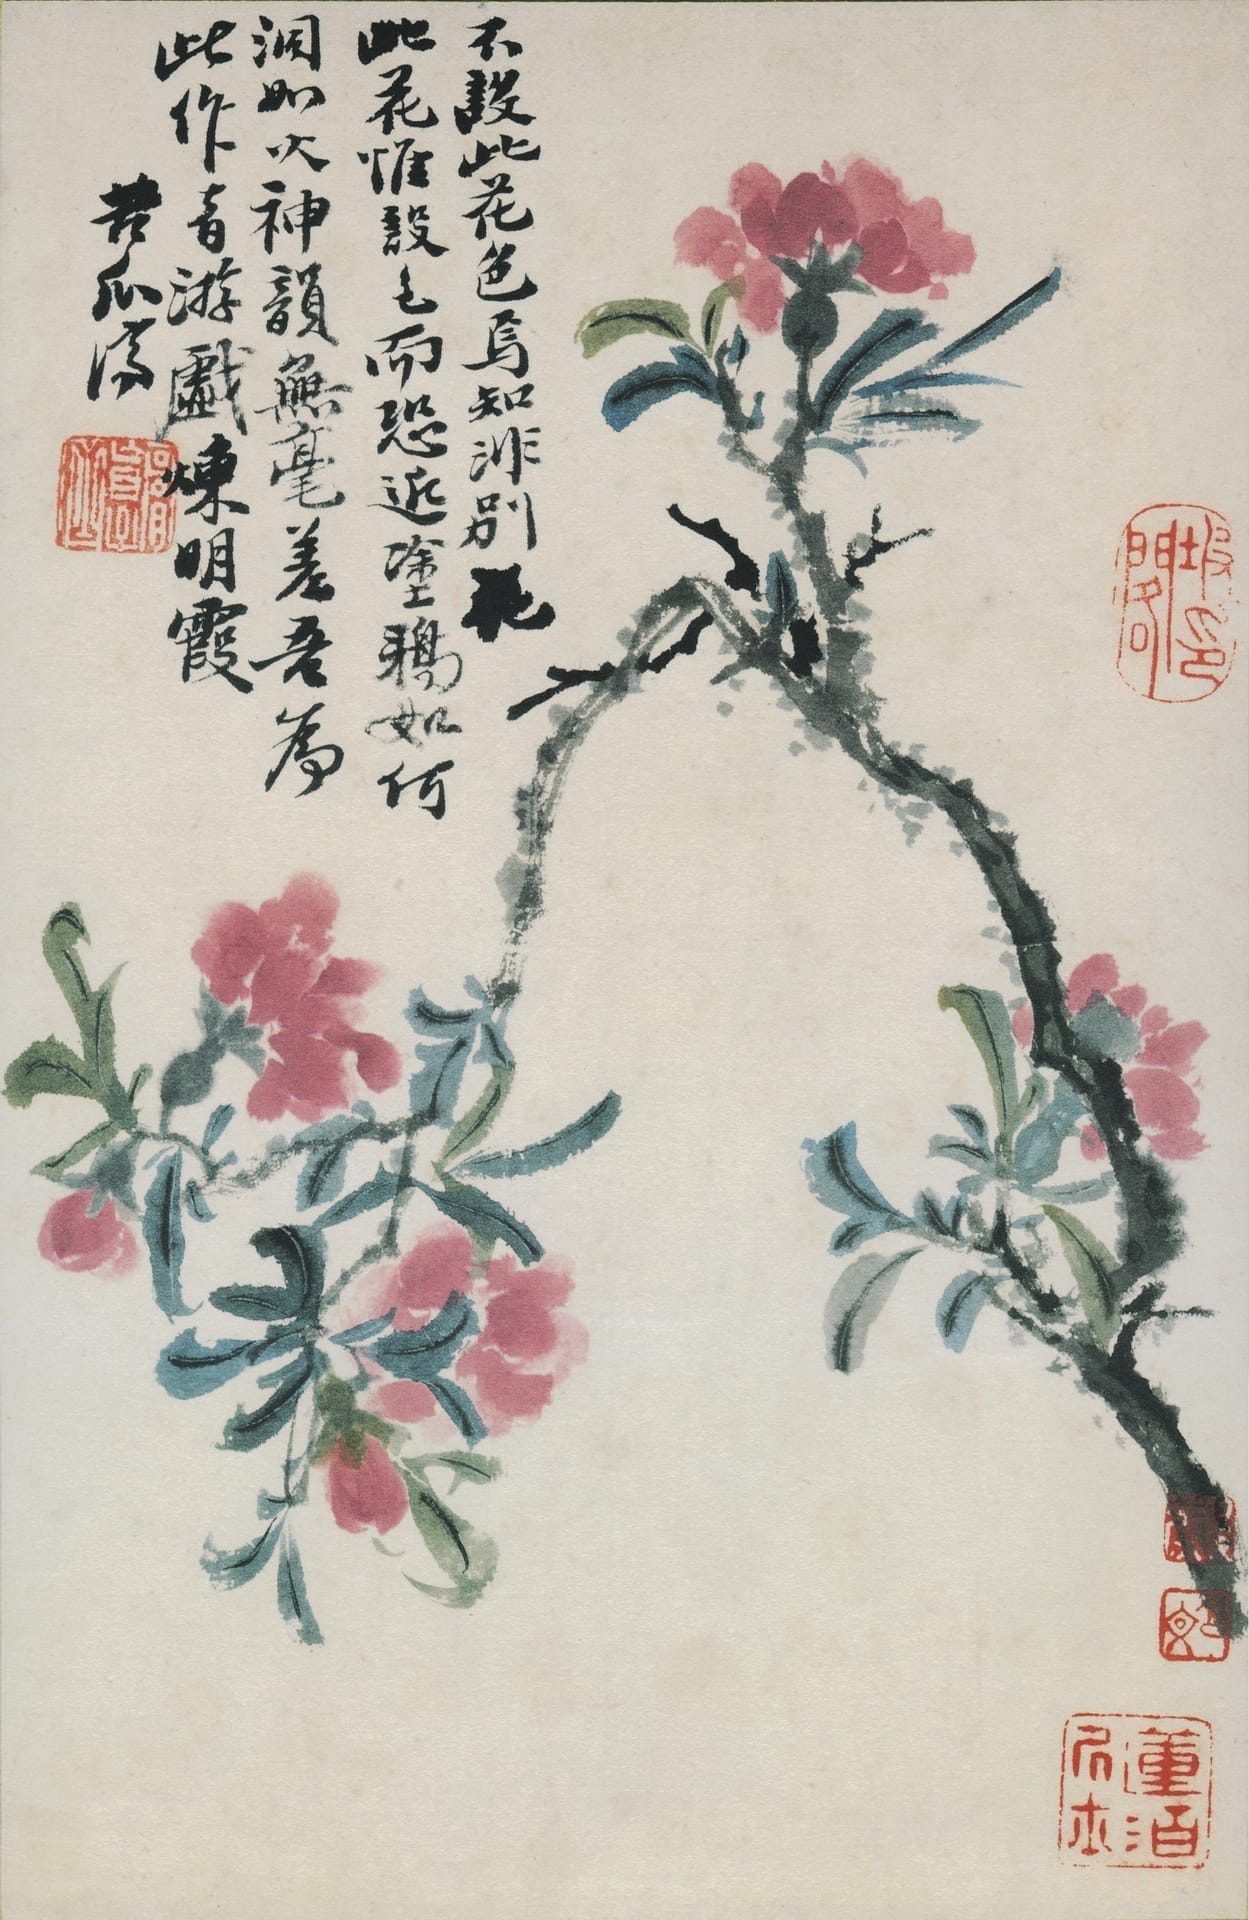 不設此花色焉知非別花
此花惟設色而恐近塗鴉如何
如火神韻無毫差吾為
此作游戲煉明霞
苦瓜濟